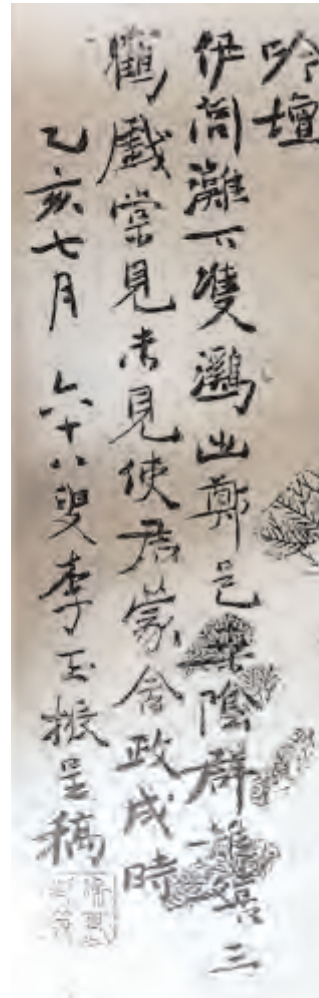 吟壇
伊闕灘下雙鸂出鄭邑桑陰群雉嬉三
觀戲嘗見未見使君蒙舍政成時
乙亥七月 六十八叟李玉呈稿